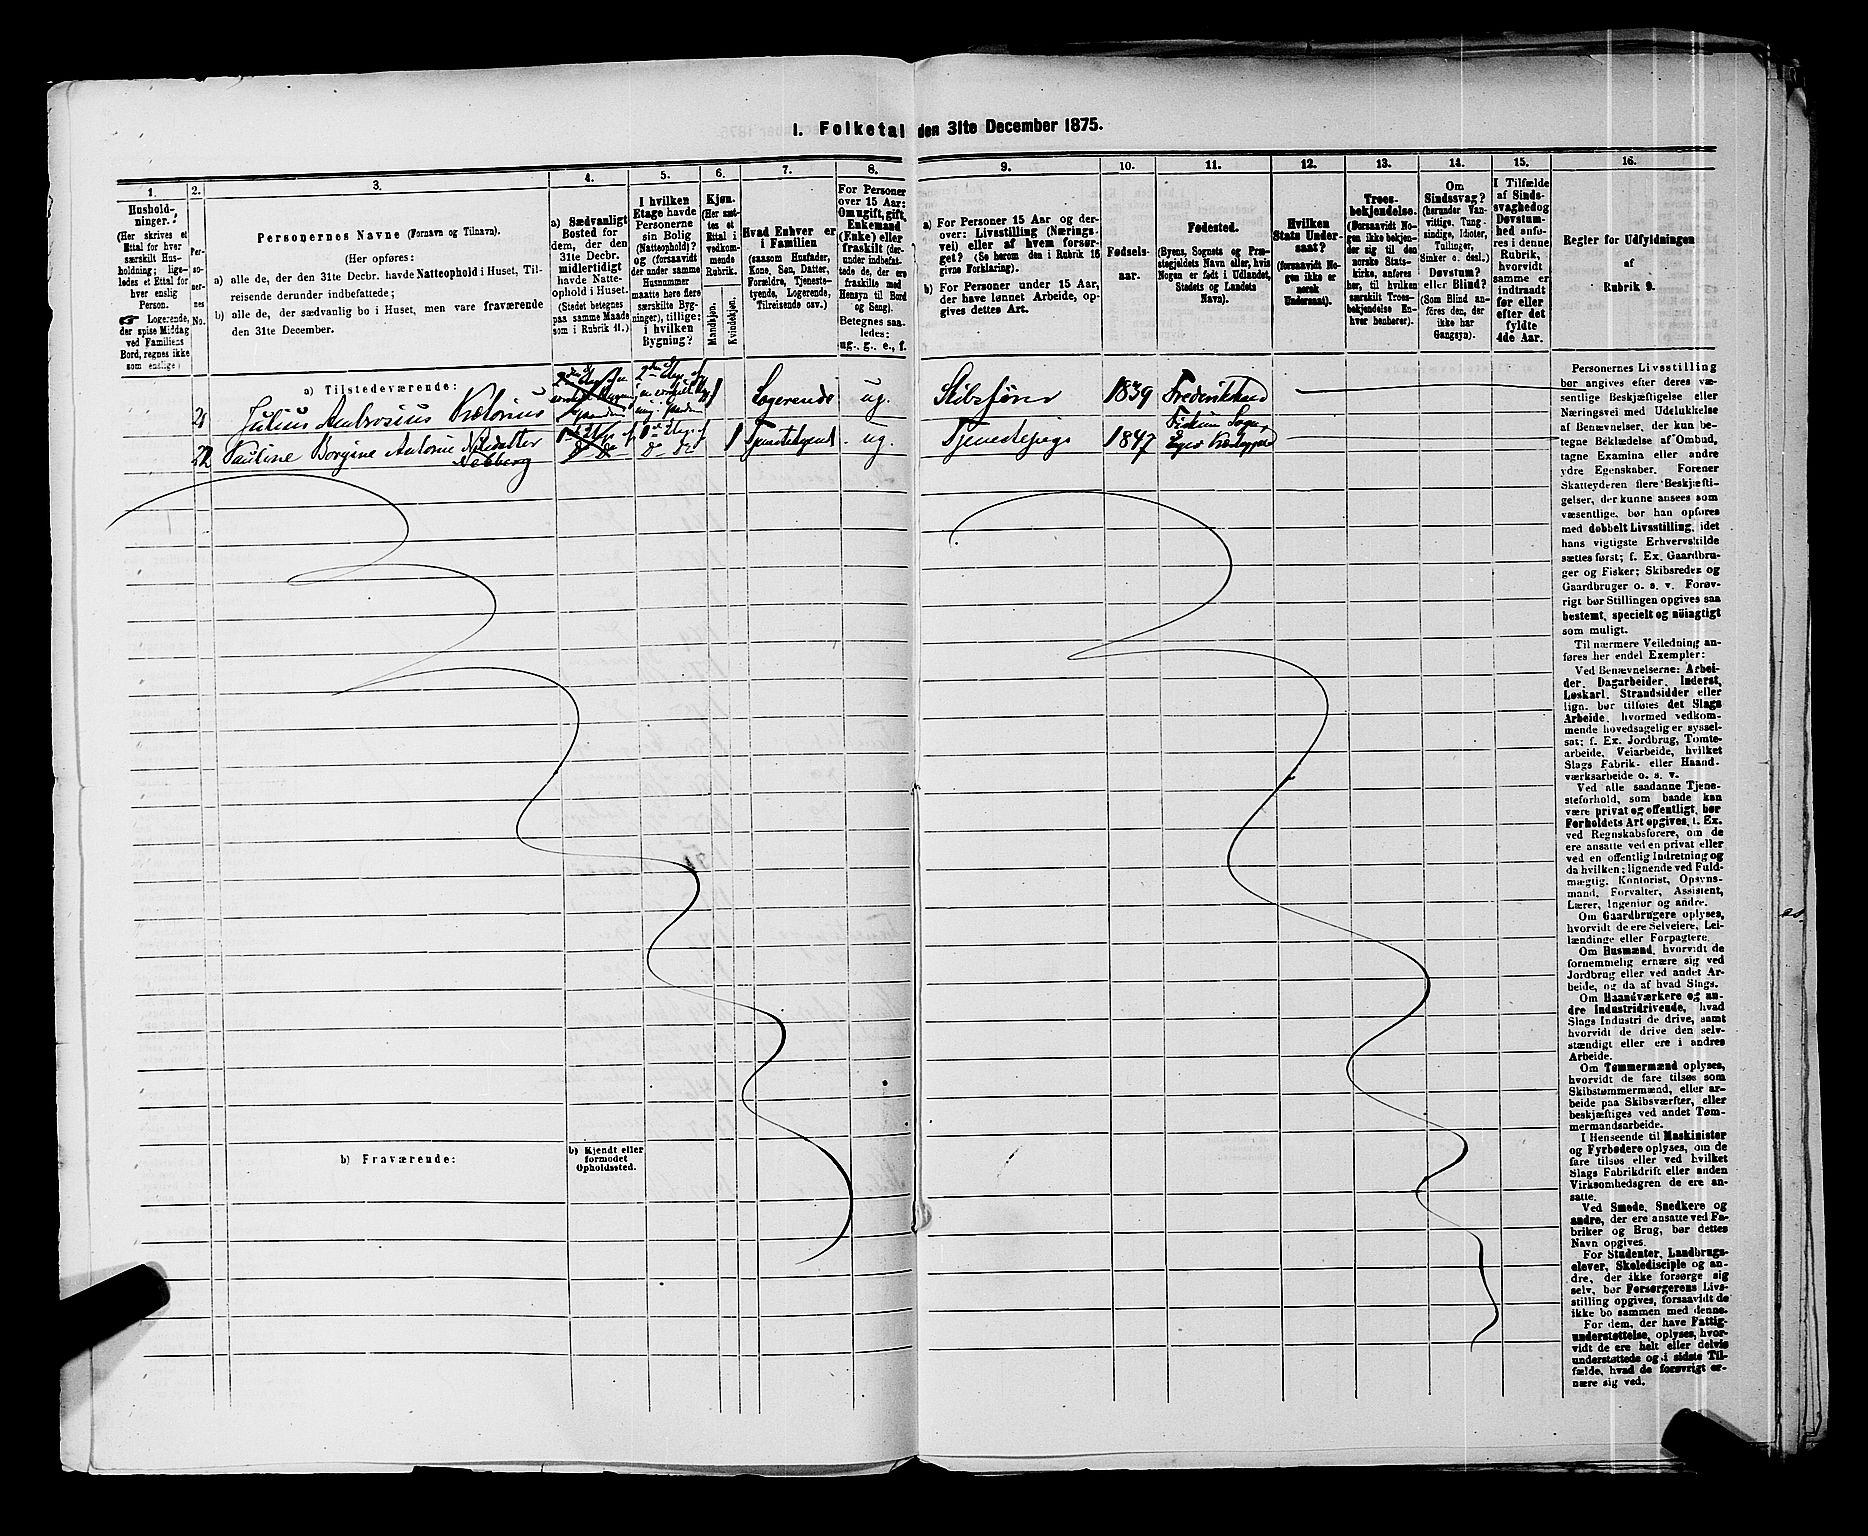 1. Folketal den 31te December 1875.
1.
Hushold-
ninger.
(Her skrives et
Ettal for hver
særskilt Hus-
holdning; lige-
ledes et Ettal for
hver enslig
Person.
Logerende,
der spise Middag
ved Familiens
Bord, regnes ikke
som enslige)
2.
Per-
so-
ner-
nes
No.
3.
Personernes Navne (Fornavn og Tilnavn).
(Her opføres:
a) alle de, der den 31te Decbr. havde Natteophold i Huset, Til-
reisende derunder indbefattede;
b) alle de, der sædvanlig bo i Huset, men vare fraværende
den 31te December.
4.
a) Sædvanligt
Bosted for
dem, der den
31te Decbr.
midlertidigt
havde Natte-
ophold i Huset.
(Stedet betegnes
paa samme Maade
som i Rubrik 11.)
5.
I hvilken
Etage havde
Personerne
sin Bolig
(Natteophold)?
og (forsaavidt
der under samme
Husnummer
maatte høre flere
særskilte Byg-
ninger), tillige:
i hvilken
Bygning?
6.
Kjøn.
(Her sæt-
tes et
Ettal i
vedkom-
mende
Rubrik.
Mandkjøn.
Kvindekjøn.
7.
Hvad Enhver er
i Familien
(saasom Husfader,
Kone, Søn, Datter,
Forældre, Tjeneste-
tyende, Logerende,
Tilreisende osv.)
8.
For Personer
over 15 Aar:
Om ugift, gift,
Enkemand
(Enke) eller
fraskilt (der-
under indbefat-
tede de, der ere
fraskilte med
Hensyn til Bord
og Seng).
Betegnes saa-
ledes:
ug., g., e., f.
9.
a) For Personer 15 Aar og der-
over: Livsstilling (Nærings-
vei) eller af hvem forsør-
get? (Se herom den i Rubrik 16
givne Forklaring).
b) For Personer under 15 Aar,
der have lønnet Arbeide, op-
gives dettes Art.
10.
Fødsels-
aar.
11.
Fødested.
(Byens, Sognets og Præ-
stegjældets Navn eller, hvis
Nogen er født i Udlandet,
Stedets og Landets
Navn).
12.
Hvilken
Stats Under-
saat?
(forsaavidt No-
gen ikke er
norsk
Undersaat).
13.
Troes-
bekjendelse.
(Forsaavidt No-
gen ikke bekjen-
der sig til den
norske Stats-
kirke, anføres
her, til hvilken
særskilt Troes-
bekjendelse En-
hver henhører).
14.
Om
Sindssvag?
(herunder Van-
vittige, Tung-
sindige, Idioter,
Tullinger,
Sinker o. desl.)
Døvstum?
eller Blind?
(Som Blind an-
føres den, der
ikke har
Gangsyn).
15.
I Tilfælde
af Sinds-
svaghed og
Døvstum-
hed anfø-
res i denne
Rubrik,
hvorvidt
samme er
indtraadt
før eller
efter det
fyldte
4de Aar.
16.
Regler for Udfyldningen
af
Rubrik 9.
a) Tilstedeværende:
21 Julius Ambrosius Victorius Logerende ug. Skibsfører 1839 Frederikstad
22 Pauline Borgine Antonie Nilsdatter 1 Tjenestetyende ug. Tjenestepige 1847 Fiskum Sogn,
b) Fraværende:
b) Kjendt eller
formodet
Opholdssted.
Personernes Livsstilling
bør angives efter deres væ-
sentlige Beskjæftigelse eller
Næringsvei med Udelukkelse
af Benævnelser, der kun be-
tegne Beklædelse af Ombud,
tagne Examina eller andre
ydre Egenskaber. Forener
Skatteyderen flere Beskjæfti-
gelser, der kunne ansees som
væsentlige, bør han opføres
med dobbelt Livsstilling, idet
hans vigtigste Erhvervskilde
sættes først; f. Ex. Gaardbru-
ger og Fisker; Skibsreder og
Gaardbruger o. s. v. Forøv-
rigt bør Stillingen opgives saa
bestemt, specielt og nøiagtigt
som muligt.
Til nærmere Veiledning an-
føres her endel Exempler:
Ved Benævnelserne: Arbei-
der, Dagarbeider, Inderst,
Løskarl, Strandsidder eller
lign. bør tilføies det Slags
Arbeide, hvormed vedkom-
mende hovedsagelig er syssel-
sat; f. Ex. Jordbrug, Tømte-
arbeide, Veiarbeide, hvilket
Slags Fabrik- eller Haand-
værksarbeide o. s. v.
Ved alle saadanne Tjene-
steforhold, som baade kan
være privat og offentligt, bør
Forholdets Art opgives, t. Ex.
ved Regnskabsførere, om de
ere ansatte ved en privat eller
ved en offentlig Indretning og
da hvilken; lignende ved Fuld-
mægtig, Kontorist, Opsyns-
mand, Forvalter, Assistent,
Lærer, Ingeniør og andre.
Om Gaardbrugere oplyses,
hvorvidt de ere Selveiere, Lei-
lændinge eller Forpagtere.
Om Husmænd, hvorvidt de
fornemmelig ernære sig ved
Jordbrug eller ved andet Ar-
beide, og da af hvad Slags.
Om Haandværkere og an-
dre Industridrivende, hvad
Slags Industri de drive, samt
hvorvidt de drive den selv-
stændigt eller ere i andres
Arbeide.
Om Tømmermænd oplyses,
hvorvidt de fare tilsøs som
Skibstømmermænd, eller ar-
beide paa Skibsværfter, eller
beskjæftiges ved andet Tøm-
mermandsarbeide.
I Henseende til Maskinister
og Fyrbødere oplyses, om de
fare tilsøs eller ved hvilket
Slags Fabrikdrift eller anden
Virksomhedsgren de ere an-
satte.
Ved Smede, Snedkere og
andre, der ere ansatte ved Fa-
briker og Brug, bør dettes
Navn opgives.
For Studenter, Landbrugs-
elever, Skoledisciple og an-
dre, der ikke forsørge sig
selv, bør Forsørgerens Livs-
stilling opgives, forsaavidt de
ikke bo sammen med denne.
For dem, der have Fattig-
understøttelse, oplyses, hvor-
vidt de ere helt eller delvis
understøttede og i sidste Til-
fælde, hvad de forøvrigt er-
nære sig ved.